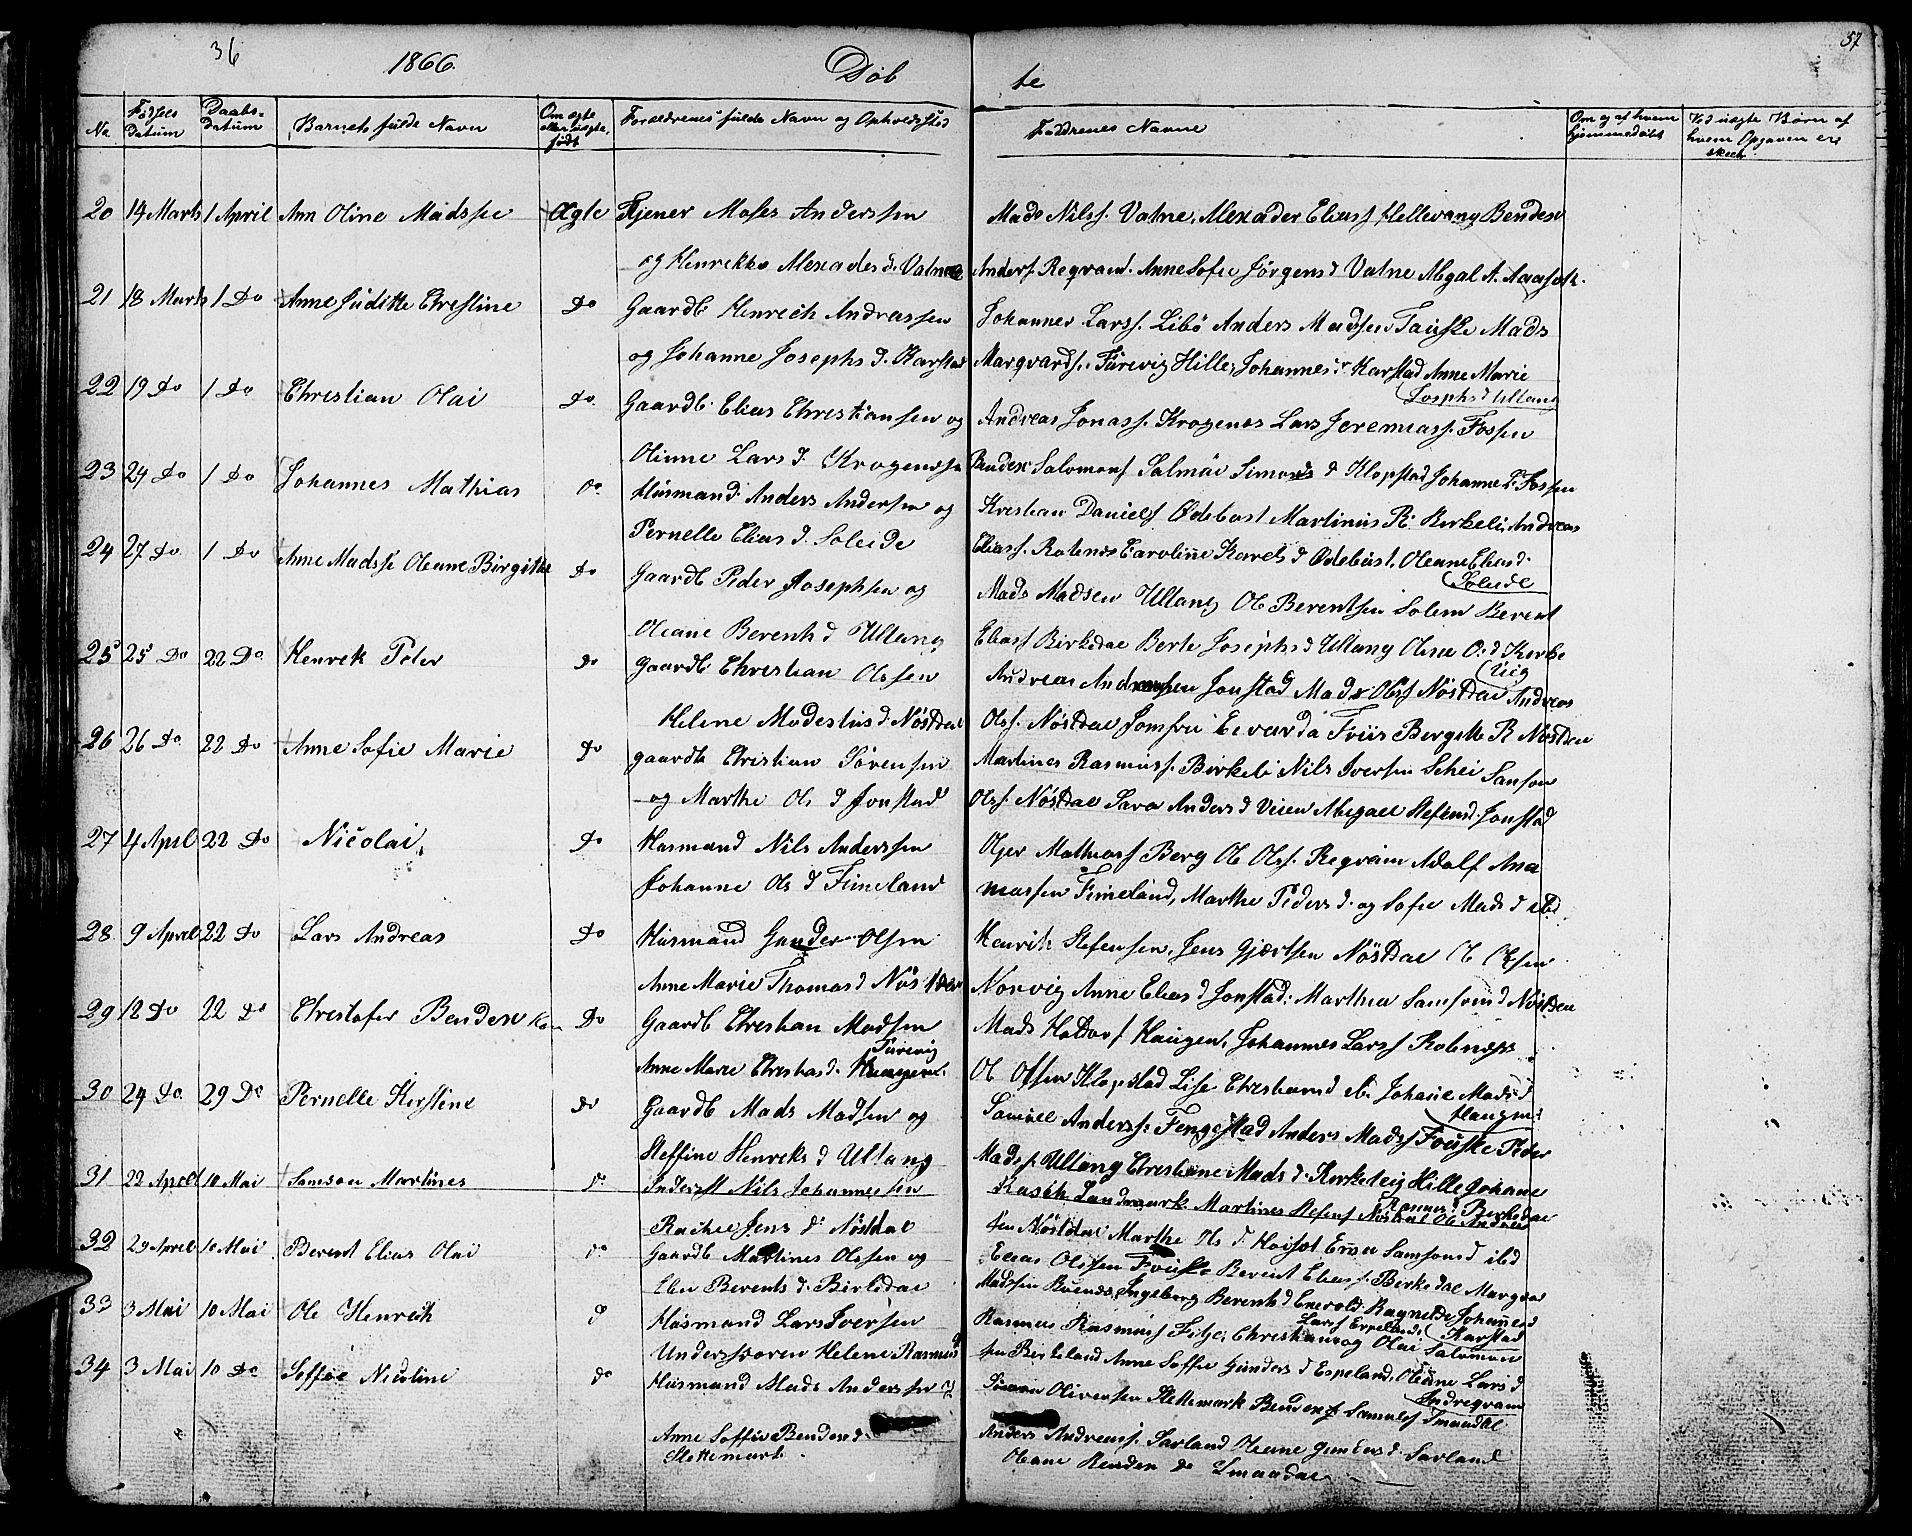 36
1866.
Døb
te
57
No
Fødsels datum
Daabs-datum
Barnets fulde Navn
Om ægte eller uægte født
Forældrenes fulde Navn og Opholdssted
Faddrenes Navne
Om og af hvem hjemmedøbt
Ved uægte Børn af hvem Opgaven er skeet
20 14 Marts 1 April Ann Oline Madsse Ægte Tjener Moses Anderssen
og Henrikke Alexaders d. Vatne
Mads Nilss. Vatne, Alexader Eliass Hellevang Bendix
Anders. Regvam. Anne Sofie Jørgens d Vatne Abgal A.
21 18 Marts 1 Do Anne Judithe Christine Do Gaardb Henrich Andreassen
og Johanne Josephs d. Karstad
Johannes Larss. Libø Anders Madsen Tauske Mads
Marqvards. Furevig Hille, Johannes d Karstad Anne Marie
Josephs d Ullang
22 19 Do 1 Do Christian Olai Do. Gaardb. Elias Christiansen og
Olinne Lars d. Krogenæs
Andreas Jonass. Krogenes Lars Jeremiass. Fossen
Bendix Salomons Salmøe Simons d Klopstad Johanne L. Fossen
23 24 Do 1 Do Johannes Mathias Do Husmand Anders Andersen og
Pernelle Elias d. Soleide
Kristian Daniels Ødebost Martinus R. Birkeli, Andreas
Eliass. Rotenes Caroline Karels d Ødebust, Oleane Elias d.
Soleide
24 27 Do 1 Do Anne Madsse Oleane Birgithe Do Gaardb Peder Josephsen og
Oleane Berenth d Ullang
Mads Madsen Ullang Ole Berentsen Solem Berent
Eliass Birkedae Berte Josephs d Ullang Oline O. d Kirke
Vieg
25 25 Do 22 Do. Henrek Peter Do Gaardb Christian Olssen
Helene Modestus d. Nøstdal
Andreas Andreassen Jonstad Mads Olss Nøstdae Andreas
Olss. Nøstdae Jomfru Eevarda Friis Bergitte R Nøstdae
26 26 Do 22 Do Anne Sofie Marie Do gaardb Christian Sørensen
og Marthe Ols d Jonstad
Martines Rasmuss. Birkeli Nils Iversen Schei Sanson
Olss. Nøstdae Sara Anders d Veien Abigael Stefens d. Jonstad
27 4 April 22 Do Nicolai Do Husmand Nils Anderssen
Johanne Ols d Fimeland
Ojer Mathiass Berg Ole Olss. Regvam Adolf Ana
niassen Fimeland, Marthe Peders d. og Sofie Mads d ibd.
28 9 April 22 Do Lars Andreas Do Husmand Gunder Olsen
Anne Marie Thomas d Nøstdae
Henrik Stefensen, Jens Gjertsen Nøstdae O Olsen
Norvig Anne Elias d Jonstad: Marthea Samson d Nøstdae
29 12 Do 22 Do Christofer Bendex Do Gaardb Christian Madsen
Furevig
Anne Marie Christias d. Haugen
Mads Hotvors Haugen, Johannes Larss Rotenæss.
Ole Olssen Klopstad Lise Christians d ib. Johane Mads d
Haugen
30 24 Do 29 Do Pernelle Kirstine Do Gaardb Mads Madsen og
Steffine Henreks d Ullang
Samuel Anderss. Fengestad Anders Madss Fouske Peder
Mads. Ullang Christiane Mads d. Kirkeleig Hille Johane
Rasmus d Birkedae
31 22 April 10 Mai Samson Martines Do Inderst Nils Johannessen
Rachel Jens d. Nøstdal
Rasch Landmark Martines Stefens Nøstdal Ole Andreas
sen Nøstdal Marthe Ols d Hoisæt Samsons d ibd
32 29 April 10 Mai Berent Elias Olai Do Gaardb Martines Olssen og
Elen Berents d. Birkedae
Elias Olssen Fouske Berent Eliass. Berkedal Margvar
Madssen Ingeborg Berenth d Enevold. Ragnilde Johannes d
Karstad
33 3 Mai 10 Mai Ole Henrich D Husmand Lars Iversen
Helene Rasmus d
Rasmus Rasmuss. Fitje, Christiane og Olai Salomon
Larss Espeland
sen Birkeland Anne Soffie Gunders d Espeland, Oleane Lars d
Indregvam
34 3 Mai 10 Do Soffie Nicoline Do Husmand Mads Anderssen og
Anne Soffie Bendex d.
Slettemark.
Simon Oliversen Slettemark Bendex Samuels Smaadal
Anders Andreass. Sarland Oleane d. Sarland
Oleane Bendex d. Smaadae